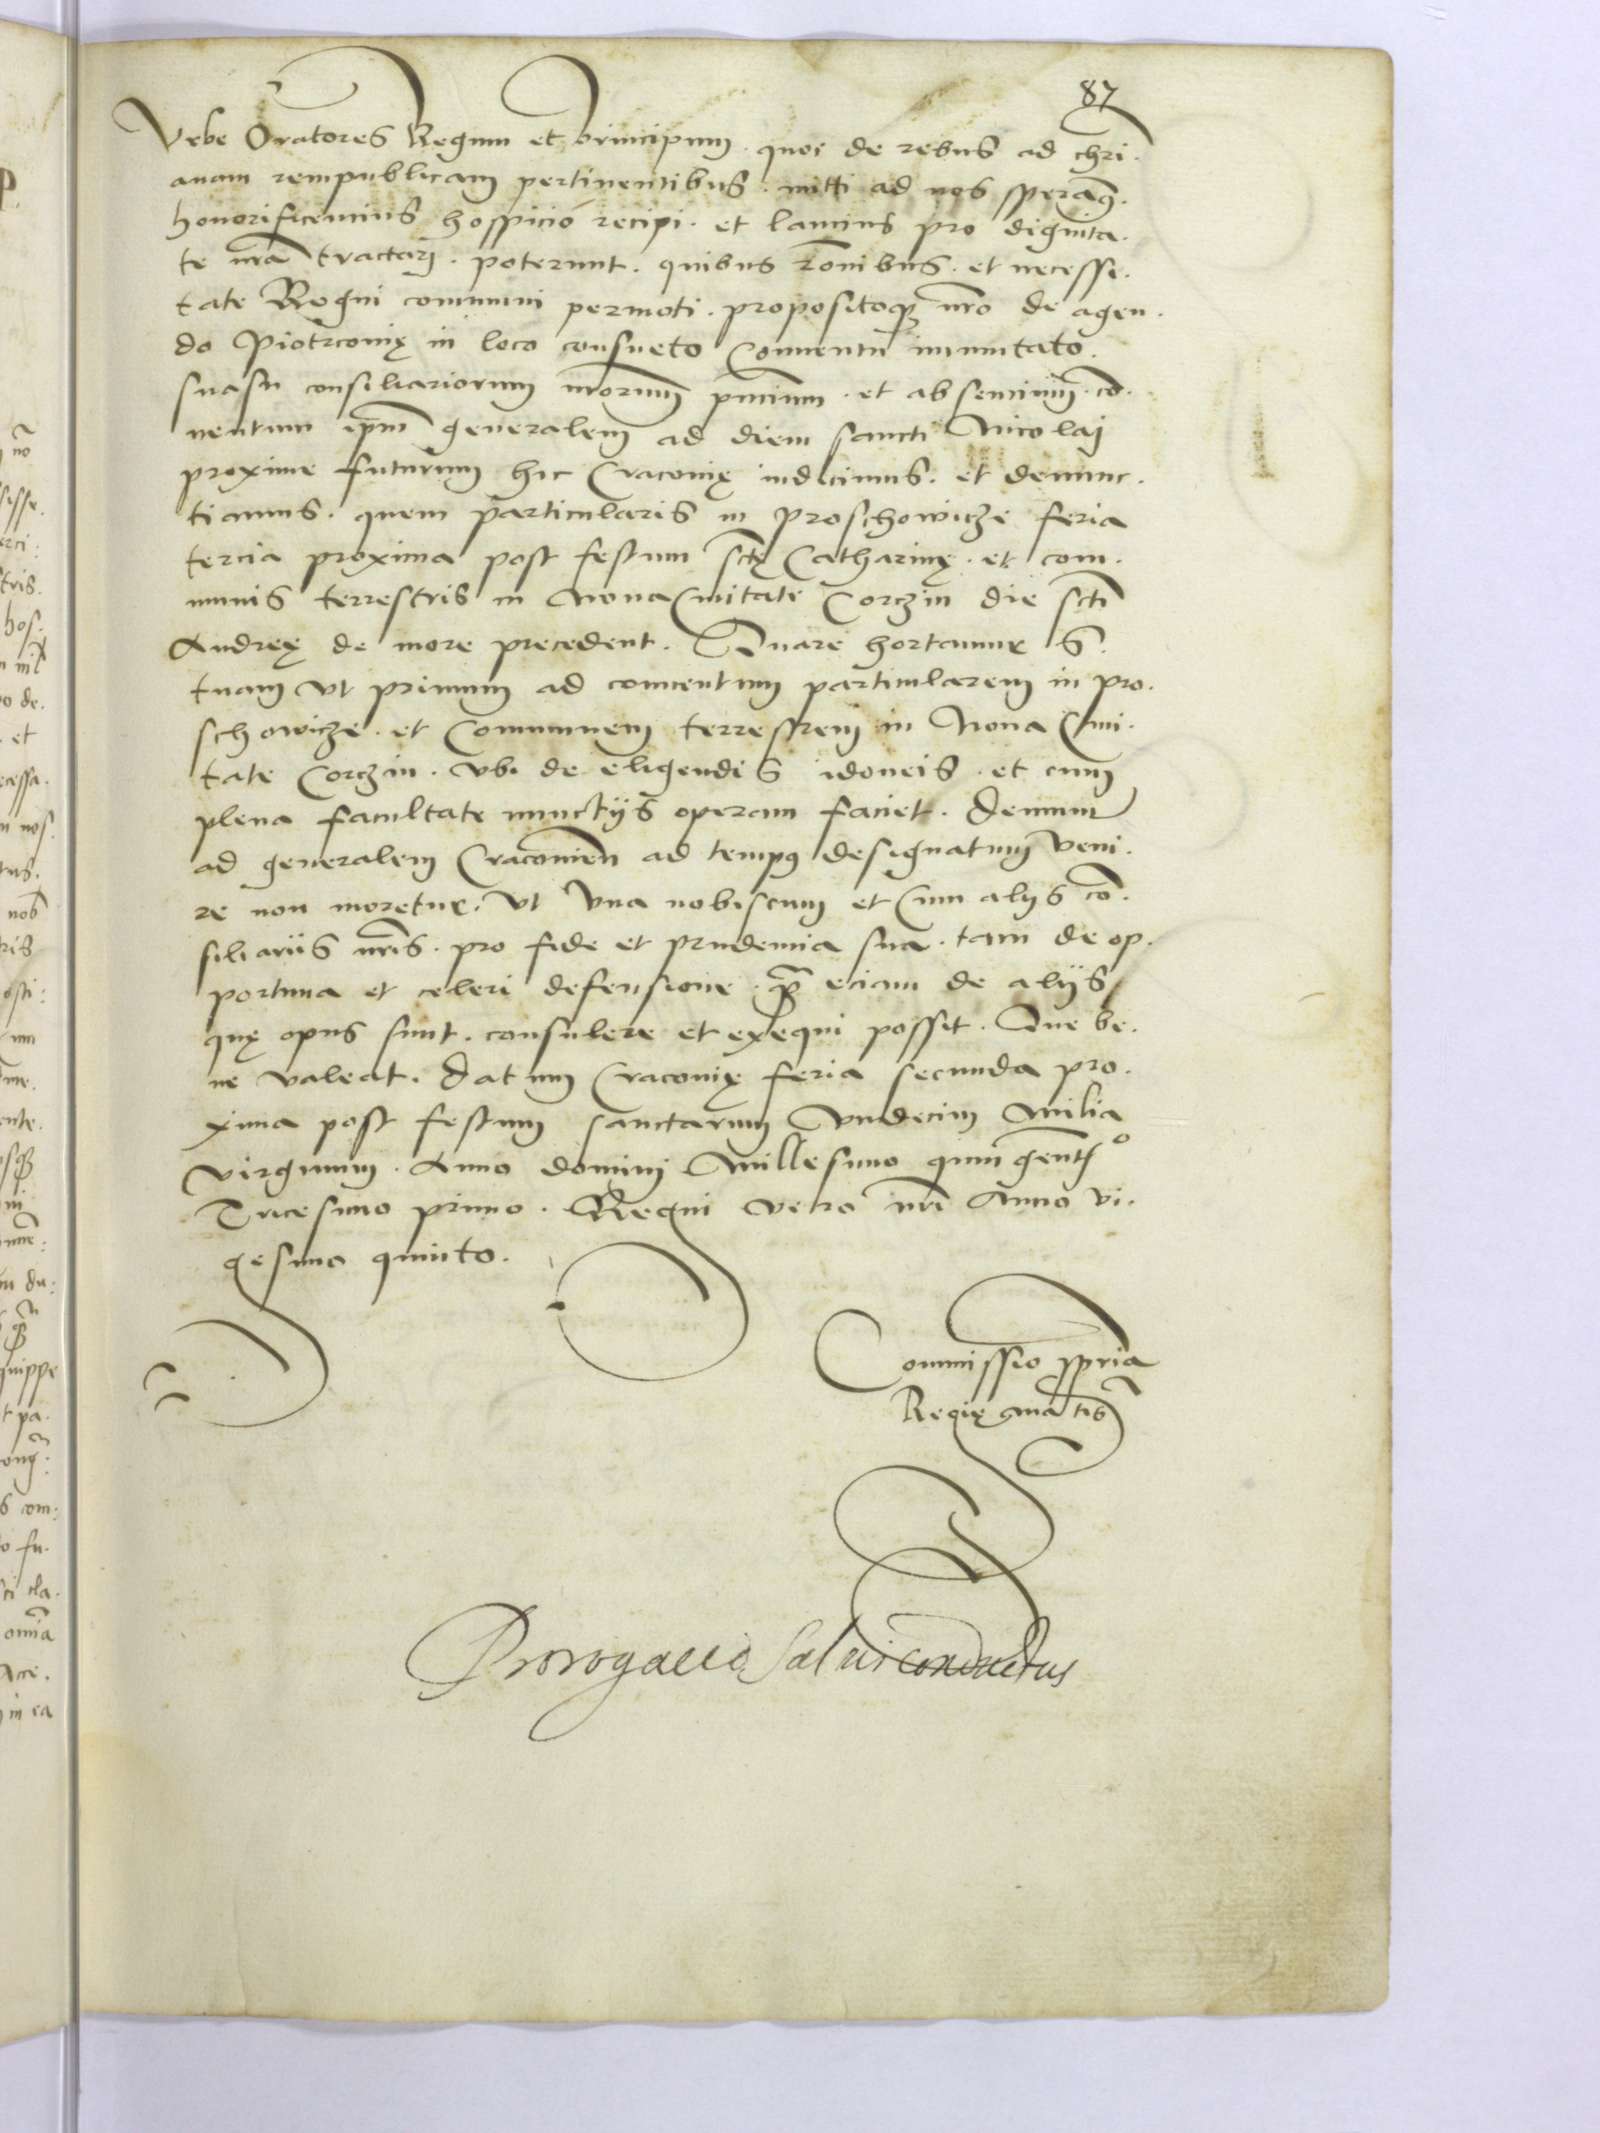 87
Vrbe Oratores Regum et principum. quos de rebus ad chri.
anam rempublicam pertinentibus. mitti ad nos speram9.
honorificentius hospicio recipi. et lautius pro dignita.
te nr̃a tractarj. poterunt. quibus rõnibus. et necessi.
tate Regni communi permoti. propositoq3 nr̃o de agen.
do Piotrconię in loco consueto Conuentu immutato.
suasu consiliariorum nr̃orum pñtium. et absentium. cõ.
uentum ip̃m generalem ad diem sancti Nicolaj
proxime futurum hic Craconię indicimus. et denunc.
tiamus. quem particularis in Proschowicze feria
tercia proxima post festum sctę Catharinę. et com.
munis terrestris in Noua Ciuitate Corczin die scti
Andreę de more precedent. Quare hortamur S.
tuam vt primum ad conuentum particularem in pro.
schowicze. et Communem terrestrem in Noua Ciui.
tate Corczin. vbi de eligendis idoneis. et cum
plena facultate nunctijs operam faciet. Demum
ad generalem Craconien̄ ad temp9 designatum veni.
re non moretur. vt vna nobiscum et cum alijs cõ.
siliarijs nr̃is. pro fide et prudentia sua. tam de op.
portuna et celeri defensione. q̃ eciam de alijs
quę opus sunt. consulere et exequi possit. Que be.
ne valeat. Datum Craconię feria secunda pro.
xima post festum sanctarum Vndecim Milia
virginum. Anno domini Millesimo quingentᵒ
Tricesimo primo. Regni vero nr̃i Anno vi.
gesimo quinto.
Commissio ppria
Regię mãtis
Prorogacio Saluiconductus